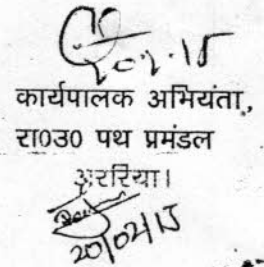 कार्यपालक अभियंता,
रा0उ0 पथ प्रमंडल
अररिया।
20/02/15